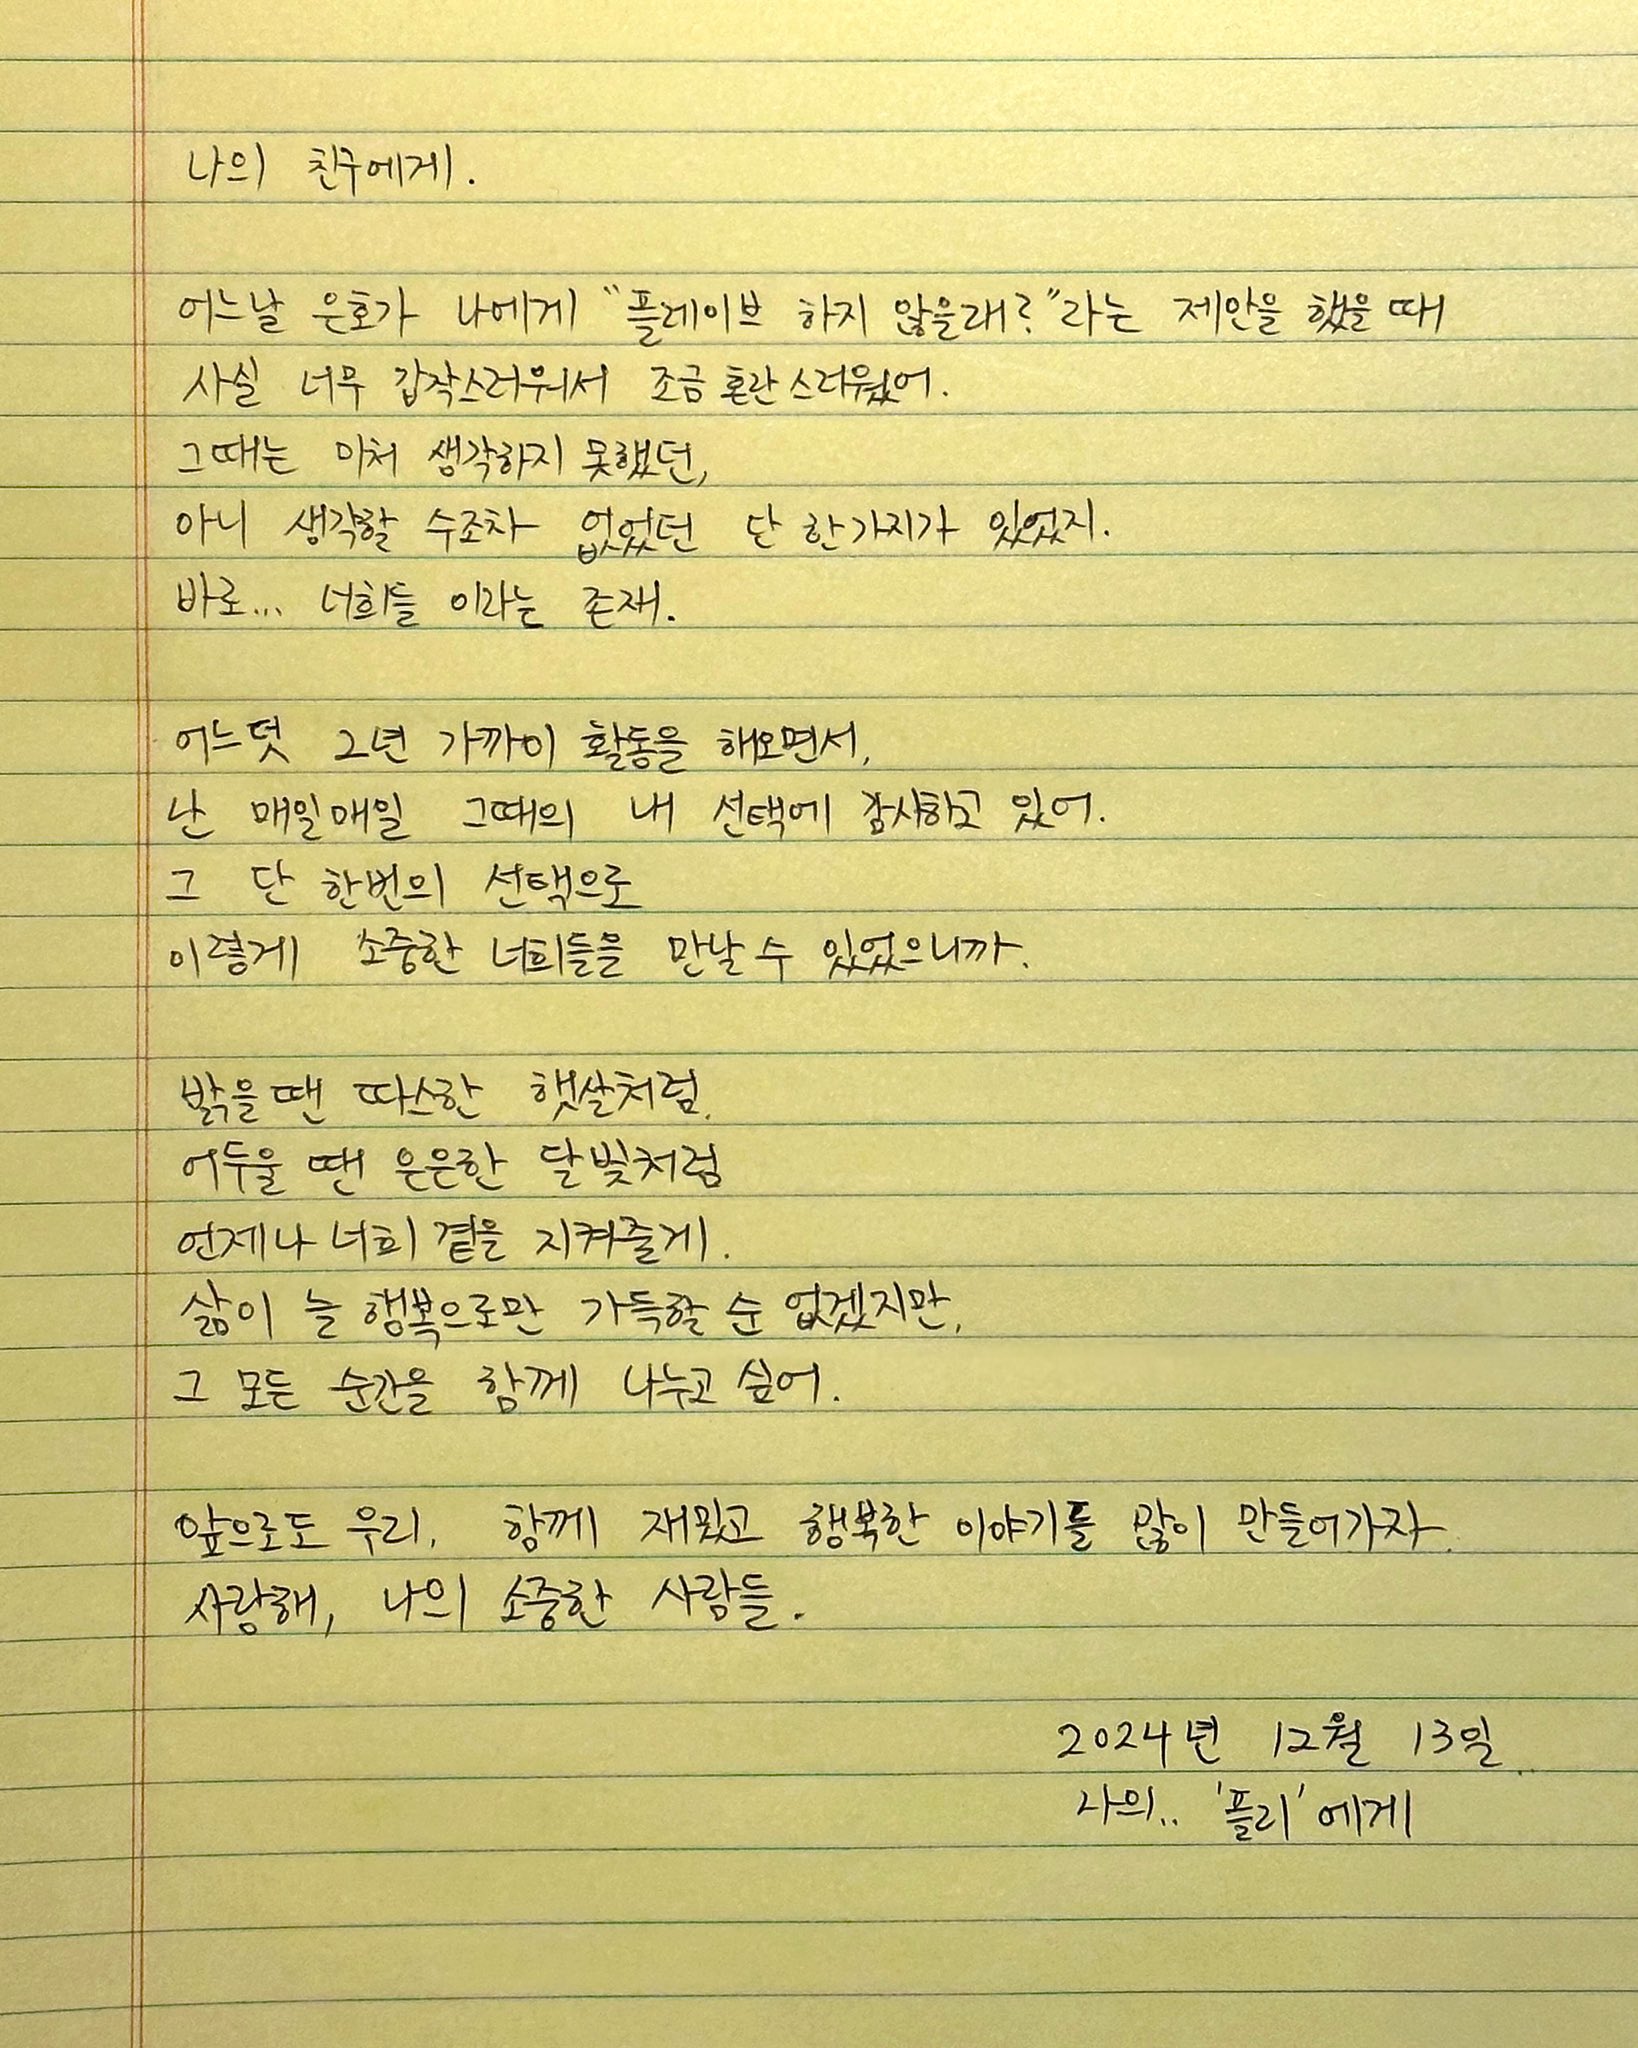 나의 친구에게.
어느날 은호가 나에게 "플레이브 하지 않을래?"라는 제안을 했을 때
사실 너무 갑작스러워서 조금 혼란스러웠어.
그때는 미처 생각하지 못했던,
아니 생각할 수조차 없었던 단 한가지가 있었지.
바로... 너희들 이라는 존재.
어느덧 2년 가까이 활동을 해오면서,
난 매일매일 그때의 내 선택에 감사하고 있어.
그 단 한번의 선택으로
이렇게 소중한 너희들을 만날 수 있었으니까.
밝을 땐 따스한 햇살처럼,
어두울 땐 은은한 달빛처럼
언제나 너희 곁을 지켜줄게.
삶이 늘 행복으로만 가득할 순 없겠지만,
그 모든 순간을 함께 나누고 싶어.
앞으로도 우리, 함께 재밌고 행복한 이야기를 많이 만들어가자.
사랑해, 나의 소중한 사람들.
2024년 12월 13일.
나의.. '플리'에게